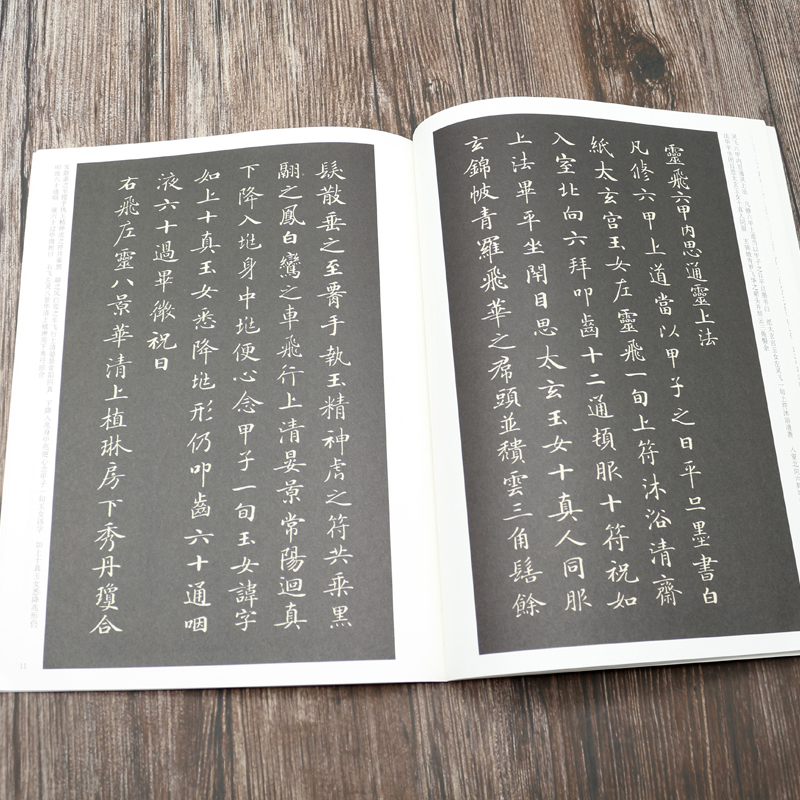 靈飛六甲內思通靈上法
凡修六甲上道當以甲子之日平旦墨書白
紙太玄宮玉女左靈飛一旬上符沐浴清齋
入室北向六拜叩齒十二通頓服十符祝如
上法畢平坐閉目思太玄玉女十真人同服
玄錦帔青羅飛華之帬頭並頽雲三角髻餘
髮散垂之至㬱手執玉精神虎之符共乘黑
翮之鳳白鸞之車飛行上清晏景常陽迴真
下降入埊身中埊便心念甲子一旬玉女諱字
如上十真玉女悉降埊形仍叩齒六十通咽
液六十過畢微祝曰
右飛左靈八景華清上植琳房下秀丹瓊合
11